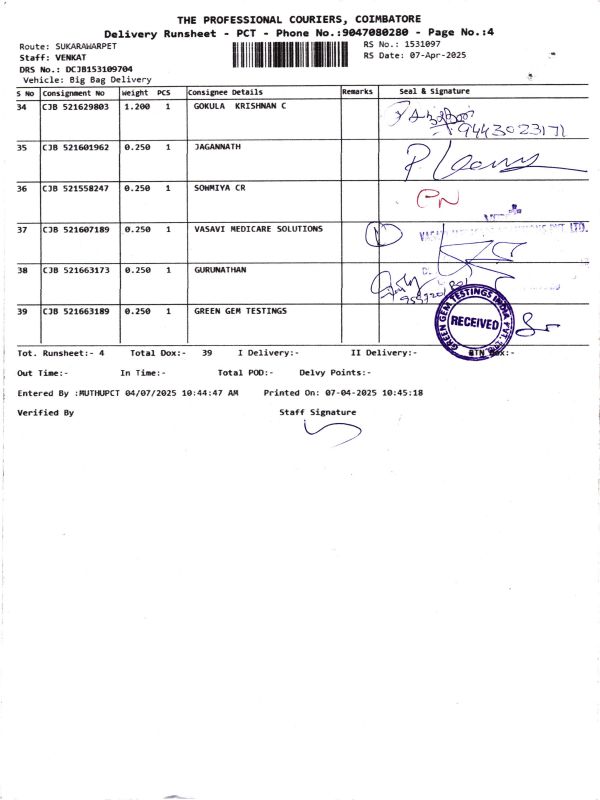 THE PROFESSIONAL COURIERS, COIMBATORE
Delivery Runsheet - PCT - Phone No.:9047080280 - Page No.:4
Route: SUKARAWARPET
RS No.: 1531097
Staff: VENKAT
RS Date: 07-Apr-2025
DRS No.: DCJB153109704
Vehicle: Big Bag Delivery
S No Consignment No Weight PCS Consignee Details Remarks Seal & Signature
34 CJB 521629803 1.200 1 GOKULA KRISHNAN C
9443023171
35 CJB 521601962 0.250 1 JAGANNATH
36 CJB 521558247 0.250 1 SOWMIYA CR
PN
37 CJB 521607189 0.250 1 VASAVI MEDICARE SOLUTIONS
38 CJB 521663173 0.250 1 GURUNATHAN
39 CJB 521663189 0.250 1 GREEN GEM TESTINGS
GREEN GEM TESTINGS INDIA PVT. LTD.
RECEIVED
Tot. Runsheet:- 4 Total Dox:- 39 I Delivery:- II Delivery:- BTN Dox:-
Out Time:- In Time:- Total POD:- Delvy Points:-
Entered By :MUTHUPCT 04/07/2025 10:44:47 AM Printed On: 07-04-2025 10:45:18
Verified By Staff Signature